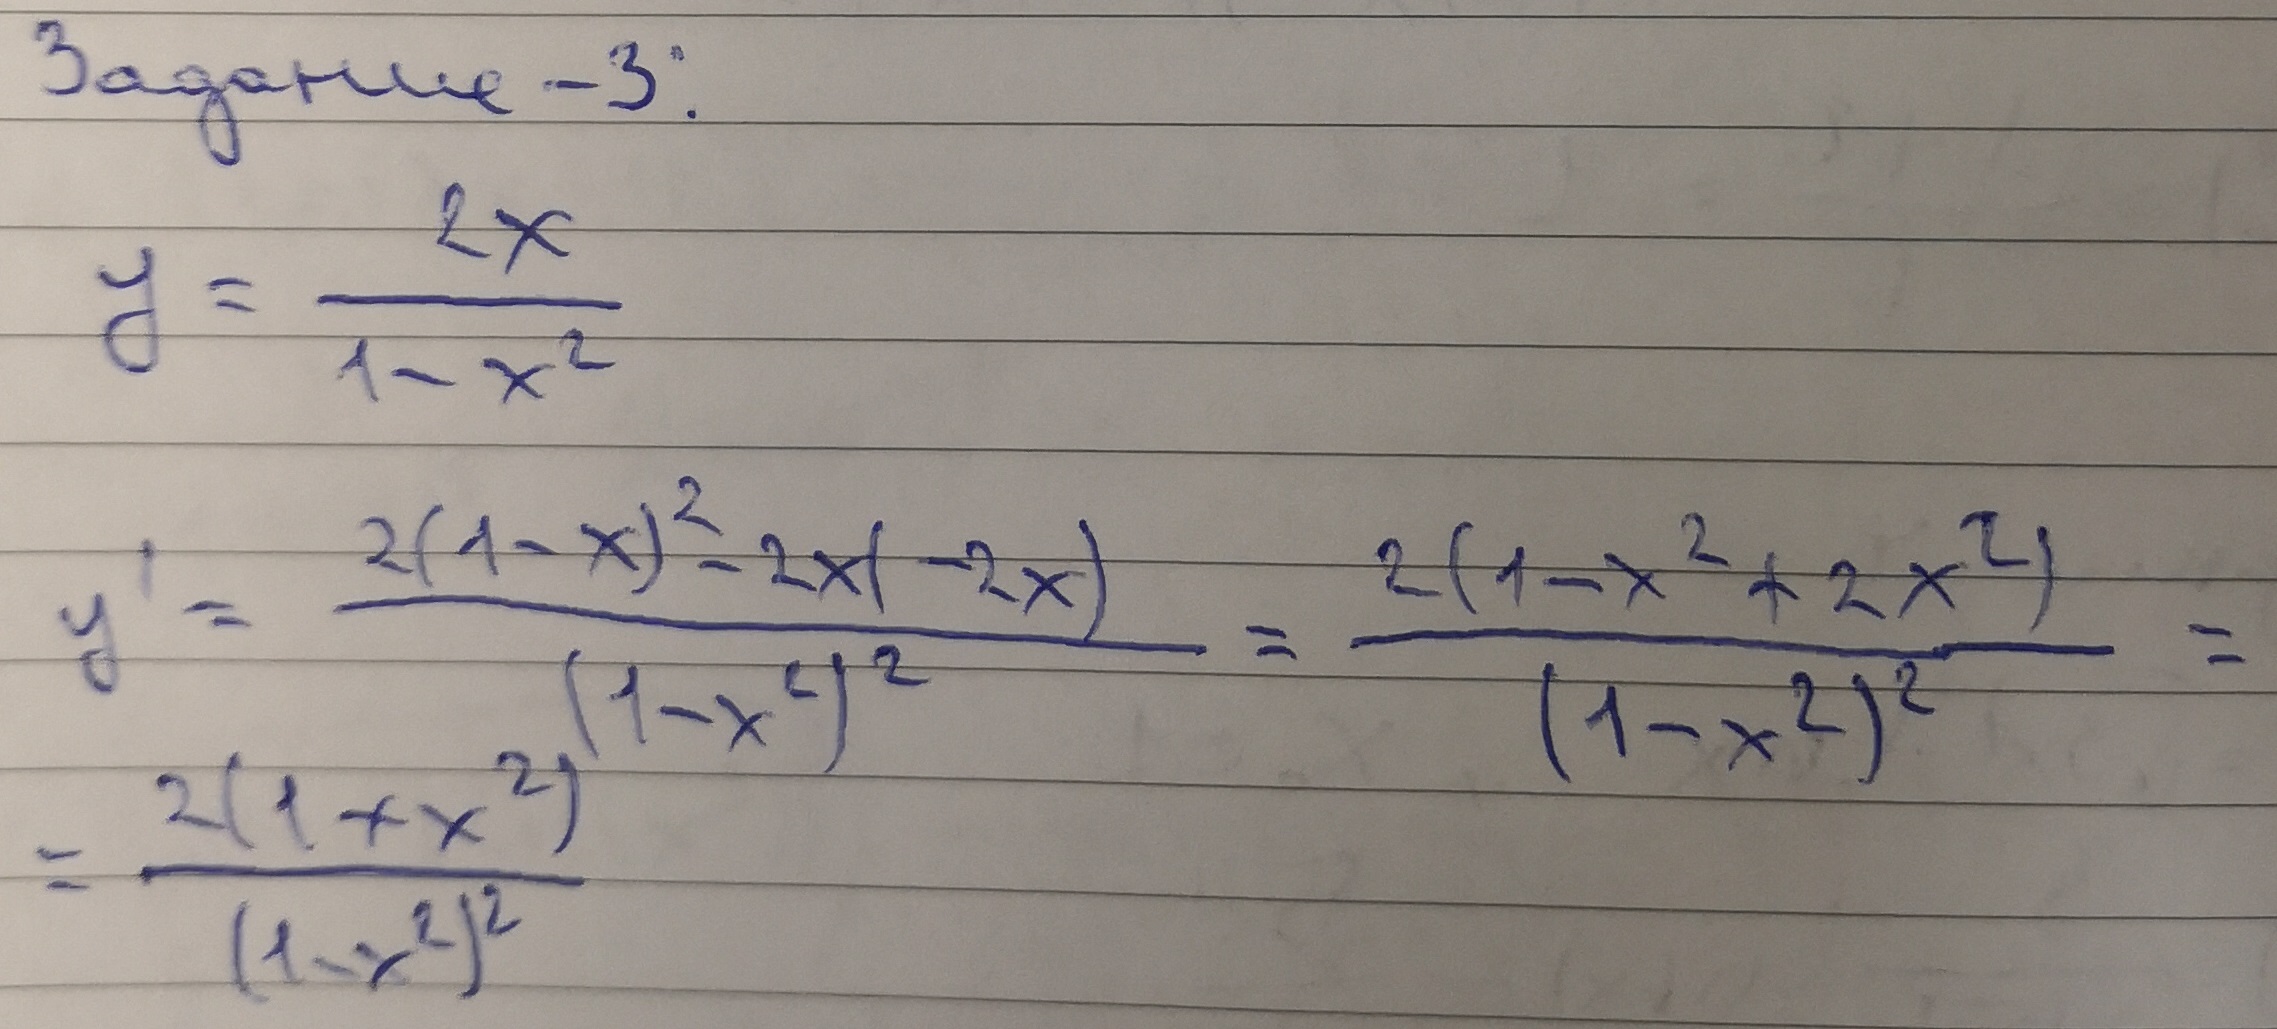 Задание-3:
y = \frac{2x}{1-x^2}
y' = \frac{2(1-x)^2-2x(-2x)}{(1-x^2)^2} = \frac{2(1-x^2+2x^2)}{(1-x^2)^2} =
= \frac{2(1+x^2)}{(1-x^2)^2}